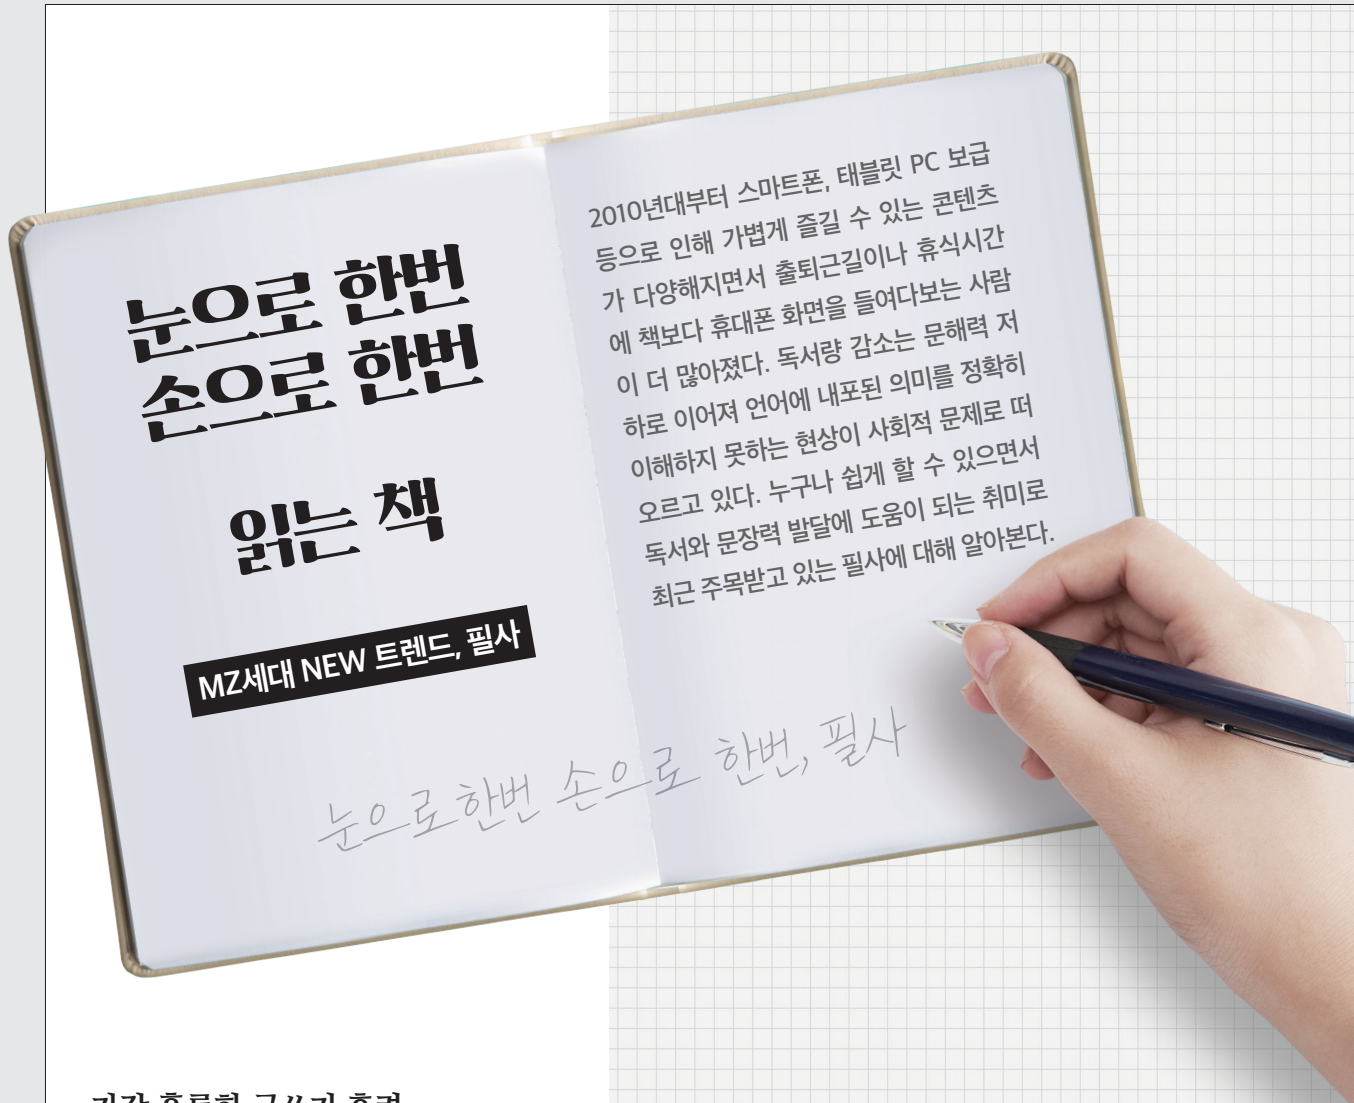 눈으로 한번
손으로 한번
읽는 책
MZ세대 NEW 트렌드, 필사
2010년대부터 스마트폰, 태블릿 PC 보급
등으로 인해 가볍게 즐길 수 있는 콘텐츠
가 다양해지면서 출퇴근길이나 휴식시간
에 책보다 휴대폰 화면을 들여다보는 사람
이 더 많아졌다. 독서량 감소는 문해력 저
하로 이어져 언어에 내포된 의미를 정확히
이해하지 못하는 현상이 사회적 문제로 떠
오르고 있다. 누구나 쉽게 할 수 있으면서
독서와 문장력 발달에 도움이 되는 취미로
최근 주목받고 있는 필사에 대해 알아본다.
눈으로 한번 손으로 한번, 필사